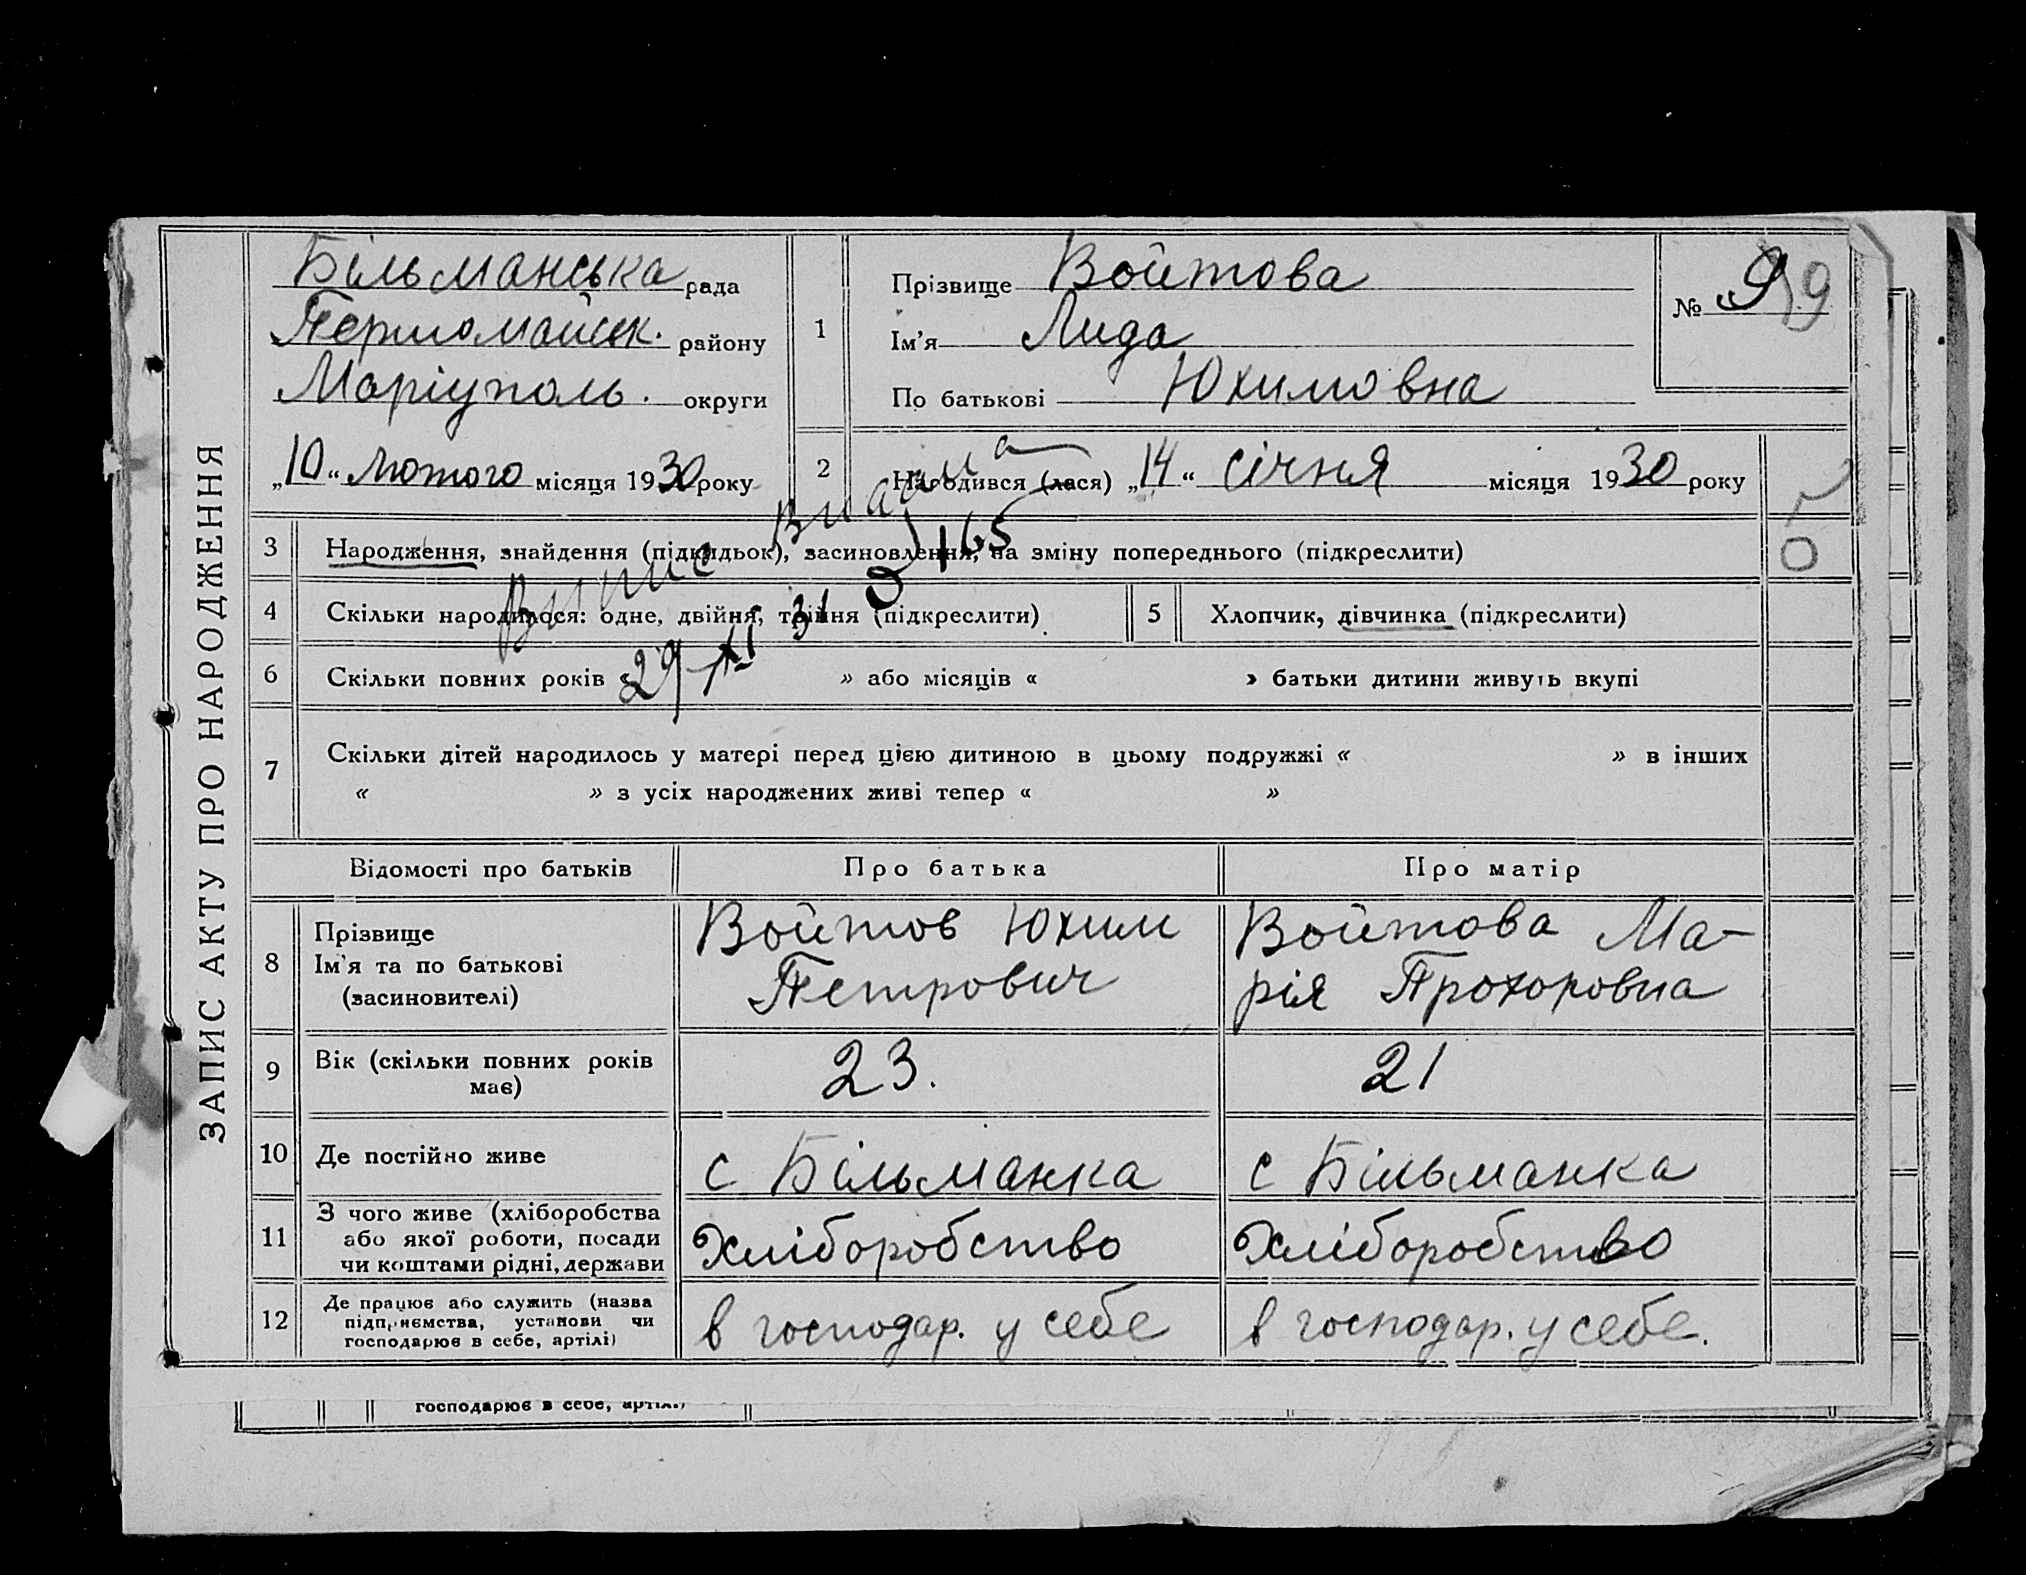 ЗАПИС АКТУ ПРО НАРОДЖЕННЯ
Більманська рада
Першомайськ. району
Маріуполь. округи
„10“ Лютого місяця 1930 року
1
Прізвище Войтова
Ім’я Лида
По батькові Юхимовна
№ 9
2
Народився (лася) „14“ січня місяця 1930 року
3 Народження, знайдення (підкидьок), засиновлення, на зміну попереднього (підкреслити)
4 Скільки народилося: одне, двійня, трійня (підкреслити)
5 Хлопчик, дівчинка (підкреслити)
6 Скільки повних років « » або місяців « » батьки дитини живуть вкупі
7 Скільки дітей народилось у матері перед цією дитиною в цьому подружжі « » в інших
« » з усіх народжених живі тепер « »
Випис видана
165
29 XI 31
Відомості про батьків
Про батька
Про матір
8 Прізвище
Ім’я та по батькові
(засиновителі)
Войтов Юхим
Петрович
Войтова Ма-
рія Прохоровна
9 Вік (скільки повних років
має)
23.
21
10 Де постійно живе
с Більманка
с Більманка
11 З чого живе (хліборобства
або якої роботи, посади
чи коштами рідні, держави
Хліборобство
Хліборобство
12 Де працює або служить (назва
підприємства, установи чи
господарює в себе, артілі)
в господар. у себе
в господар. у себе.
господарює в себе, артілі)